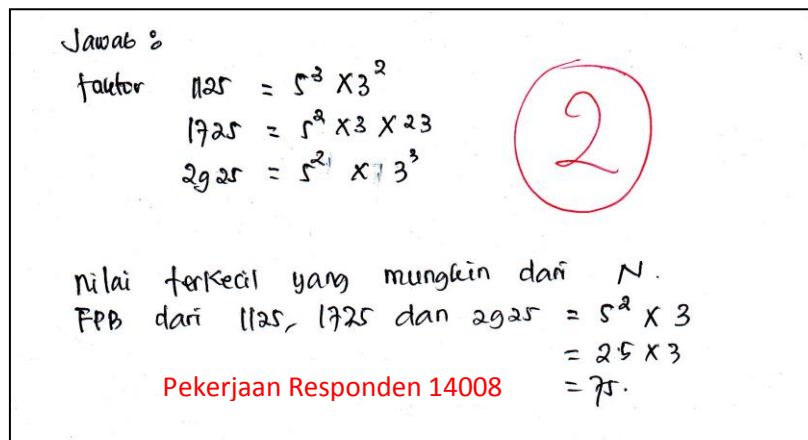 Jawab :
faktor 1125 = 5³ X 3²
1725 = 5² X 3 X 23
2925 = 5² X 3³
2
nilai terkecil yang mungkin dari N.
FPB dari 1125, 1725 dan 2925 = 5² X 3
= 25 X 3
= 75.
Pekerjaan Responden 14008